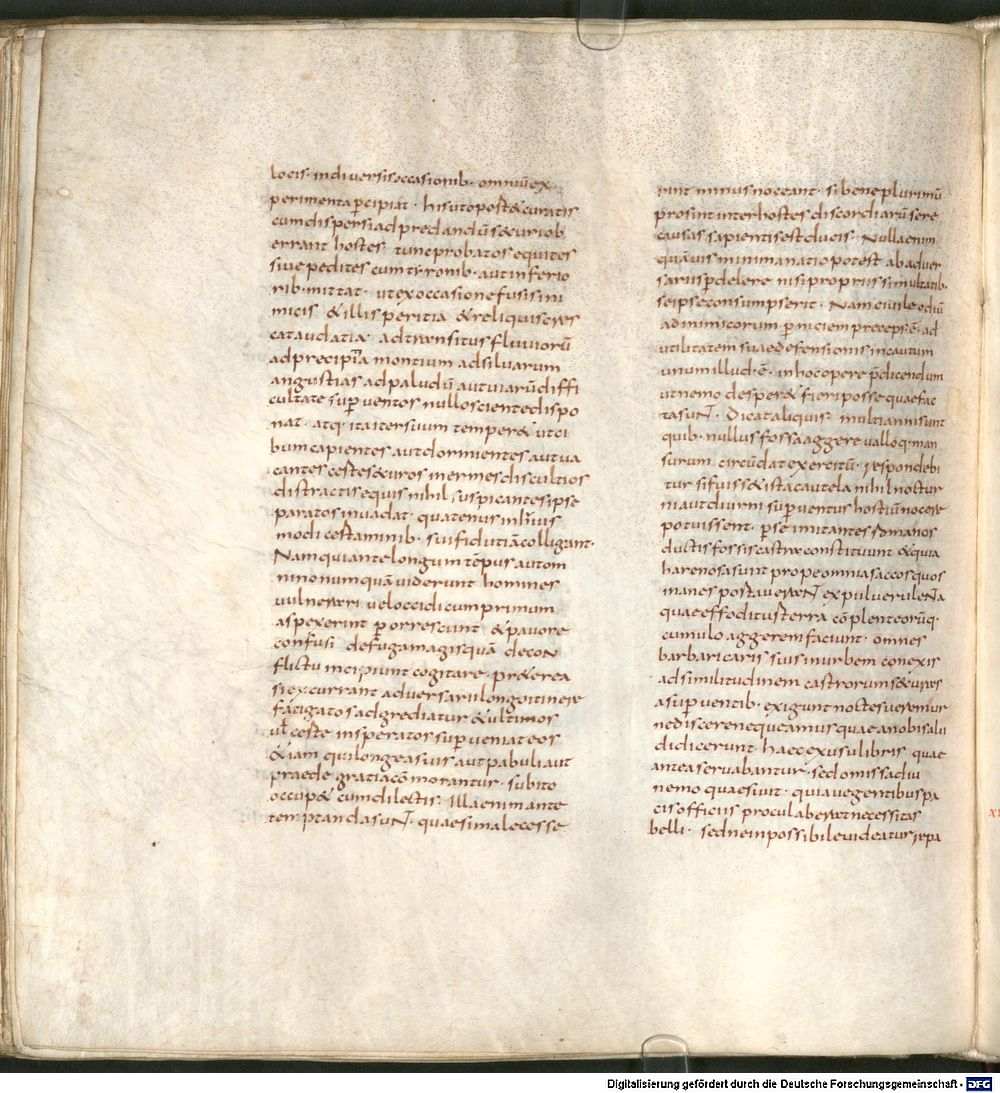 locis· indiversis occasionib· omniū ex
perimenta p̄cipiat · his uto post & curatis
cum dispersi ad predandū secvri ob
errant hostes tunc probatos equites
sive pedites cum tyronib· aut inferio
rib· mittat · ut ex occasione fusis ini
micis & illis peritia & reliquis cres
cat audatia· ad transitus fluviorū
ad precipitia montium ad silvarum
angustias ad paludū aut viarū diffi
cultate sup̄ ventos nullo sciente dispo
nat · atq· ita iter suum temper& ut ci
bum capientes aut dormientes aut va
cantes certe securos inermes discultios
distractis equis nihil suspicantes ipse
paratos invadat · quatenus in huius
modi certaminib· sui fidutiā colligant·
Nam qui ante longum tēpus aut om
nino numquā viderunt homines
vulnerari vel occidi cum primum
aspexerint p̄orrescunt & pavore
confusi de fuga magis quā decoN
flictu incipiunt cogitare · pr&erea
si excurrant adversarii longo itinere
fatigatos adgrediatur & ultimos
vł certe insperatos sup̄veniat eos
& iam qui longe a suis aut pabuli aut
praede gratia cōmorantur · subito
occup& cum dilectis · Illa enim ante
temptanda suNT · quae si male cesse
rint minus noceant · si bene plurimū
prosint inter hostes discordiarū sere
causas sapientis est ducis · Nulla enim
quavis minima natio potest ab adver
sariis p̄delere nisi propriis simultatib·
se ipse consumpserit · Nam civile odiū
ad inimicorum p̄niciem preceps·ē· ad
utilitatem suae defensionis incautum
unum illud·ē· in hoc opere p̄dicendum
ut nemo desper& fieri posse quae fac
ta suNT · Dicat aliquis · multi anni sunt
quib· nullus fossa aggere valloq· man
surum circūdat exercitū· respondebi
tur si fuiss& ista cautela nihil noctur
ni aut diurni sup̄ventus hostiū nocere
potuissent · p̄se imitantes romanos
ductis fossis castra constituunt & quia
harenosa sunt prope omnia saccos quos
inanes portaveraNT ex pulveruleNta
quae effoditus terra cōplent eorūq·
cumulo aggerem faciunt · omnes
barbari caris suis in urbem conexis
ad similitudinem castrorum secvras
a sup̄ventib· exigunt noctes veremur
ne discere nequeamus quae a nobis alii
didicerunt · haec ex usu libris quae
antea servabantur · sed omissa diu
nemo quaesivit · quia vigentibus pa
cis officiis procul aberat necessitas
belli · sed ne inpossibile videatur repa
Digitalisierung gefördert durch die Deutsche Forschungsgemeinschaft - DFG